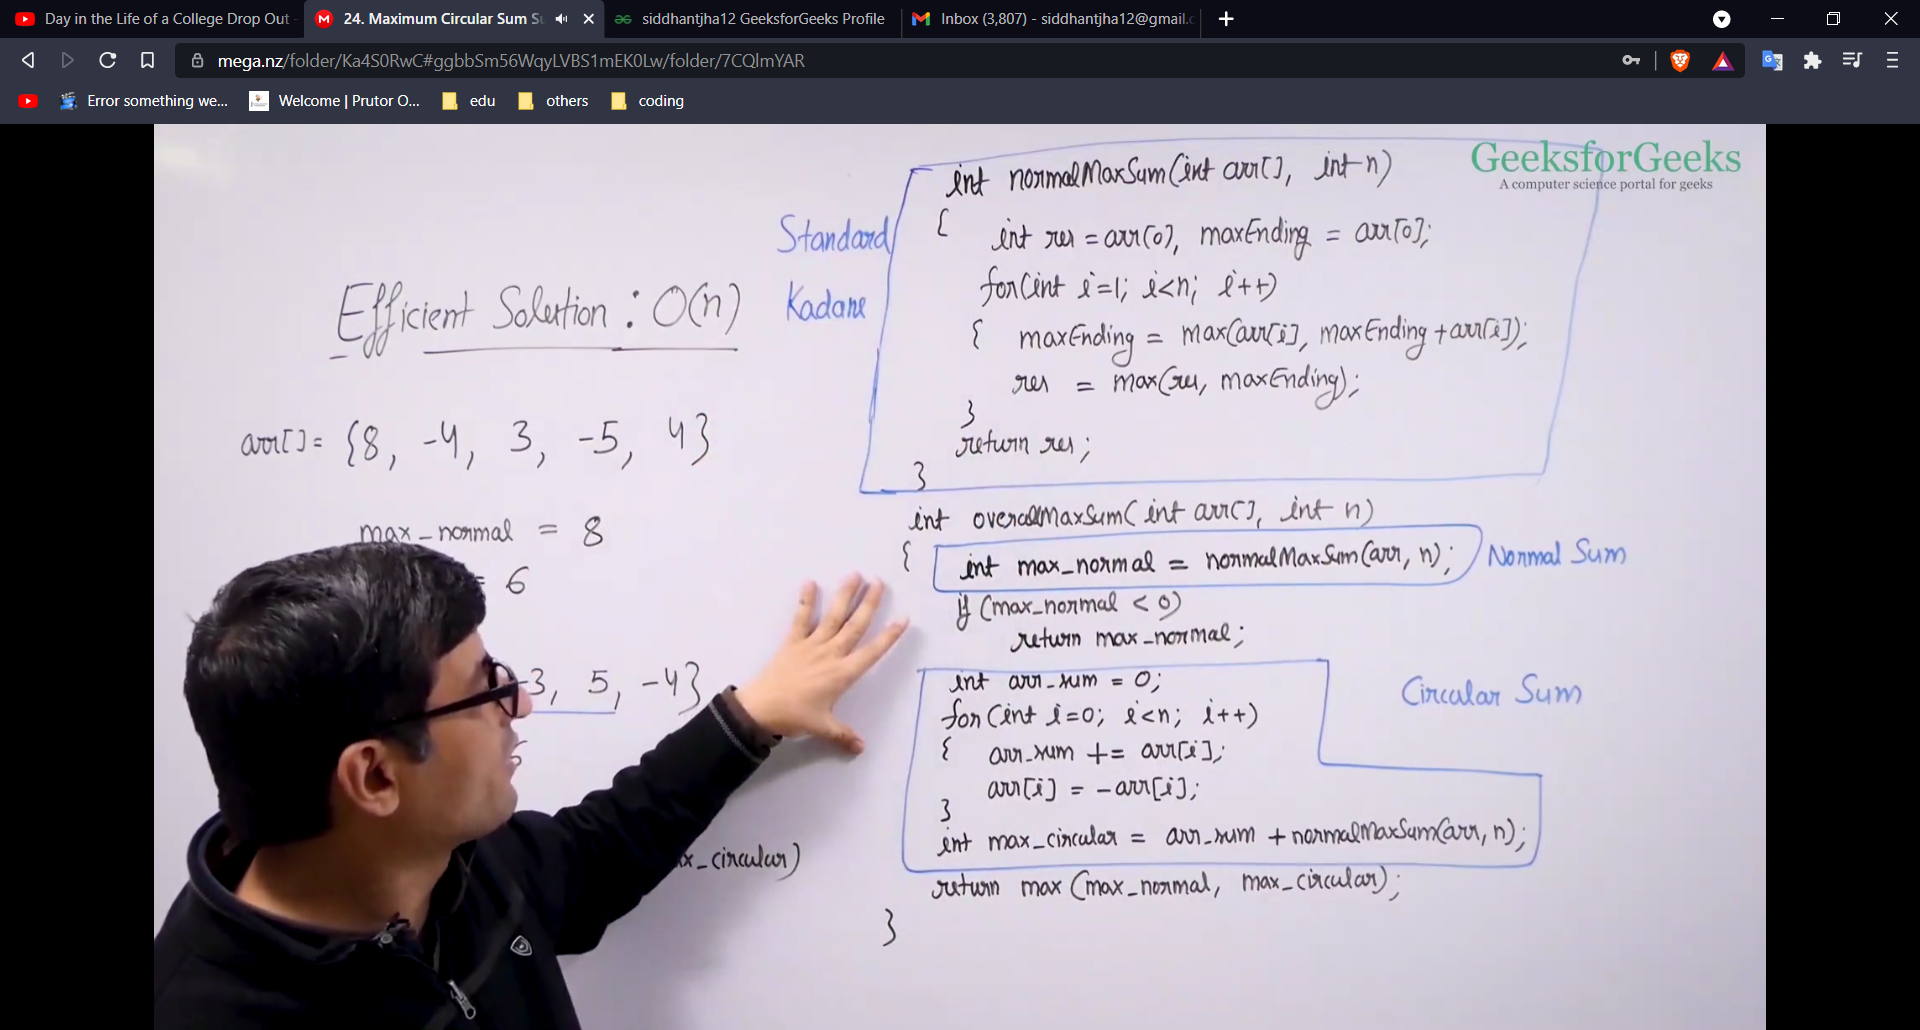 Day in the Life of a College Drop Out -
24. Maximum Circular Sum Su
siddhantjha12 GeeksforGeeks Profile
Inbox (3,807) - siddhantjha12@gmail.c
mega.nz/folder/Ka4S0RwC#ggbbSm56WqyLVBS1mEK0Lw/folder/7CQlmYAR
Error something we...
Welcome | Prutor O...
edu
others
coding
GeeksforGeeks
A computer science portal for geeks
Efficient Solution : O(n)
arr[] = {8, -4, 3, -5, 4}
max_normal = 8
= 6
-3, 5, -4}
x_circular)
Standard
Kadane
int normalMaxSum(int arr[], int n)
{
int res = arr[0], maxEnding = arr[0];
for(int i=1; i<n; i++)
{ maxEnding = max(arr[i], maxEnding + arr[i]);
res = max(res, maxEnding);
}
return res;
}
int overallMaxSum(int arr[], int n)
{ int max_normal = normalMaxSum(arr, n);
Normal Sum
if (max_normal < 0)
return max_normal;
int arr_sum = 0;
Circular Sum
for(int i=0; i<n; i++)
{ arr_sum += arr[i];
arr[i] = -arr[i];
}
int max_circular = arr_sum + normalMaxSum(arr, n);
return max (max_normal, max_circular);
}